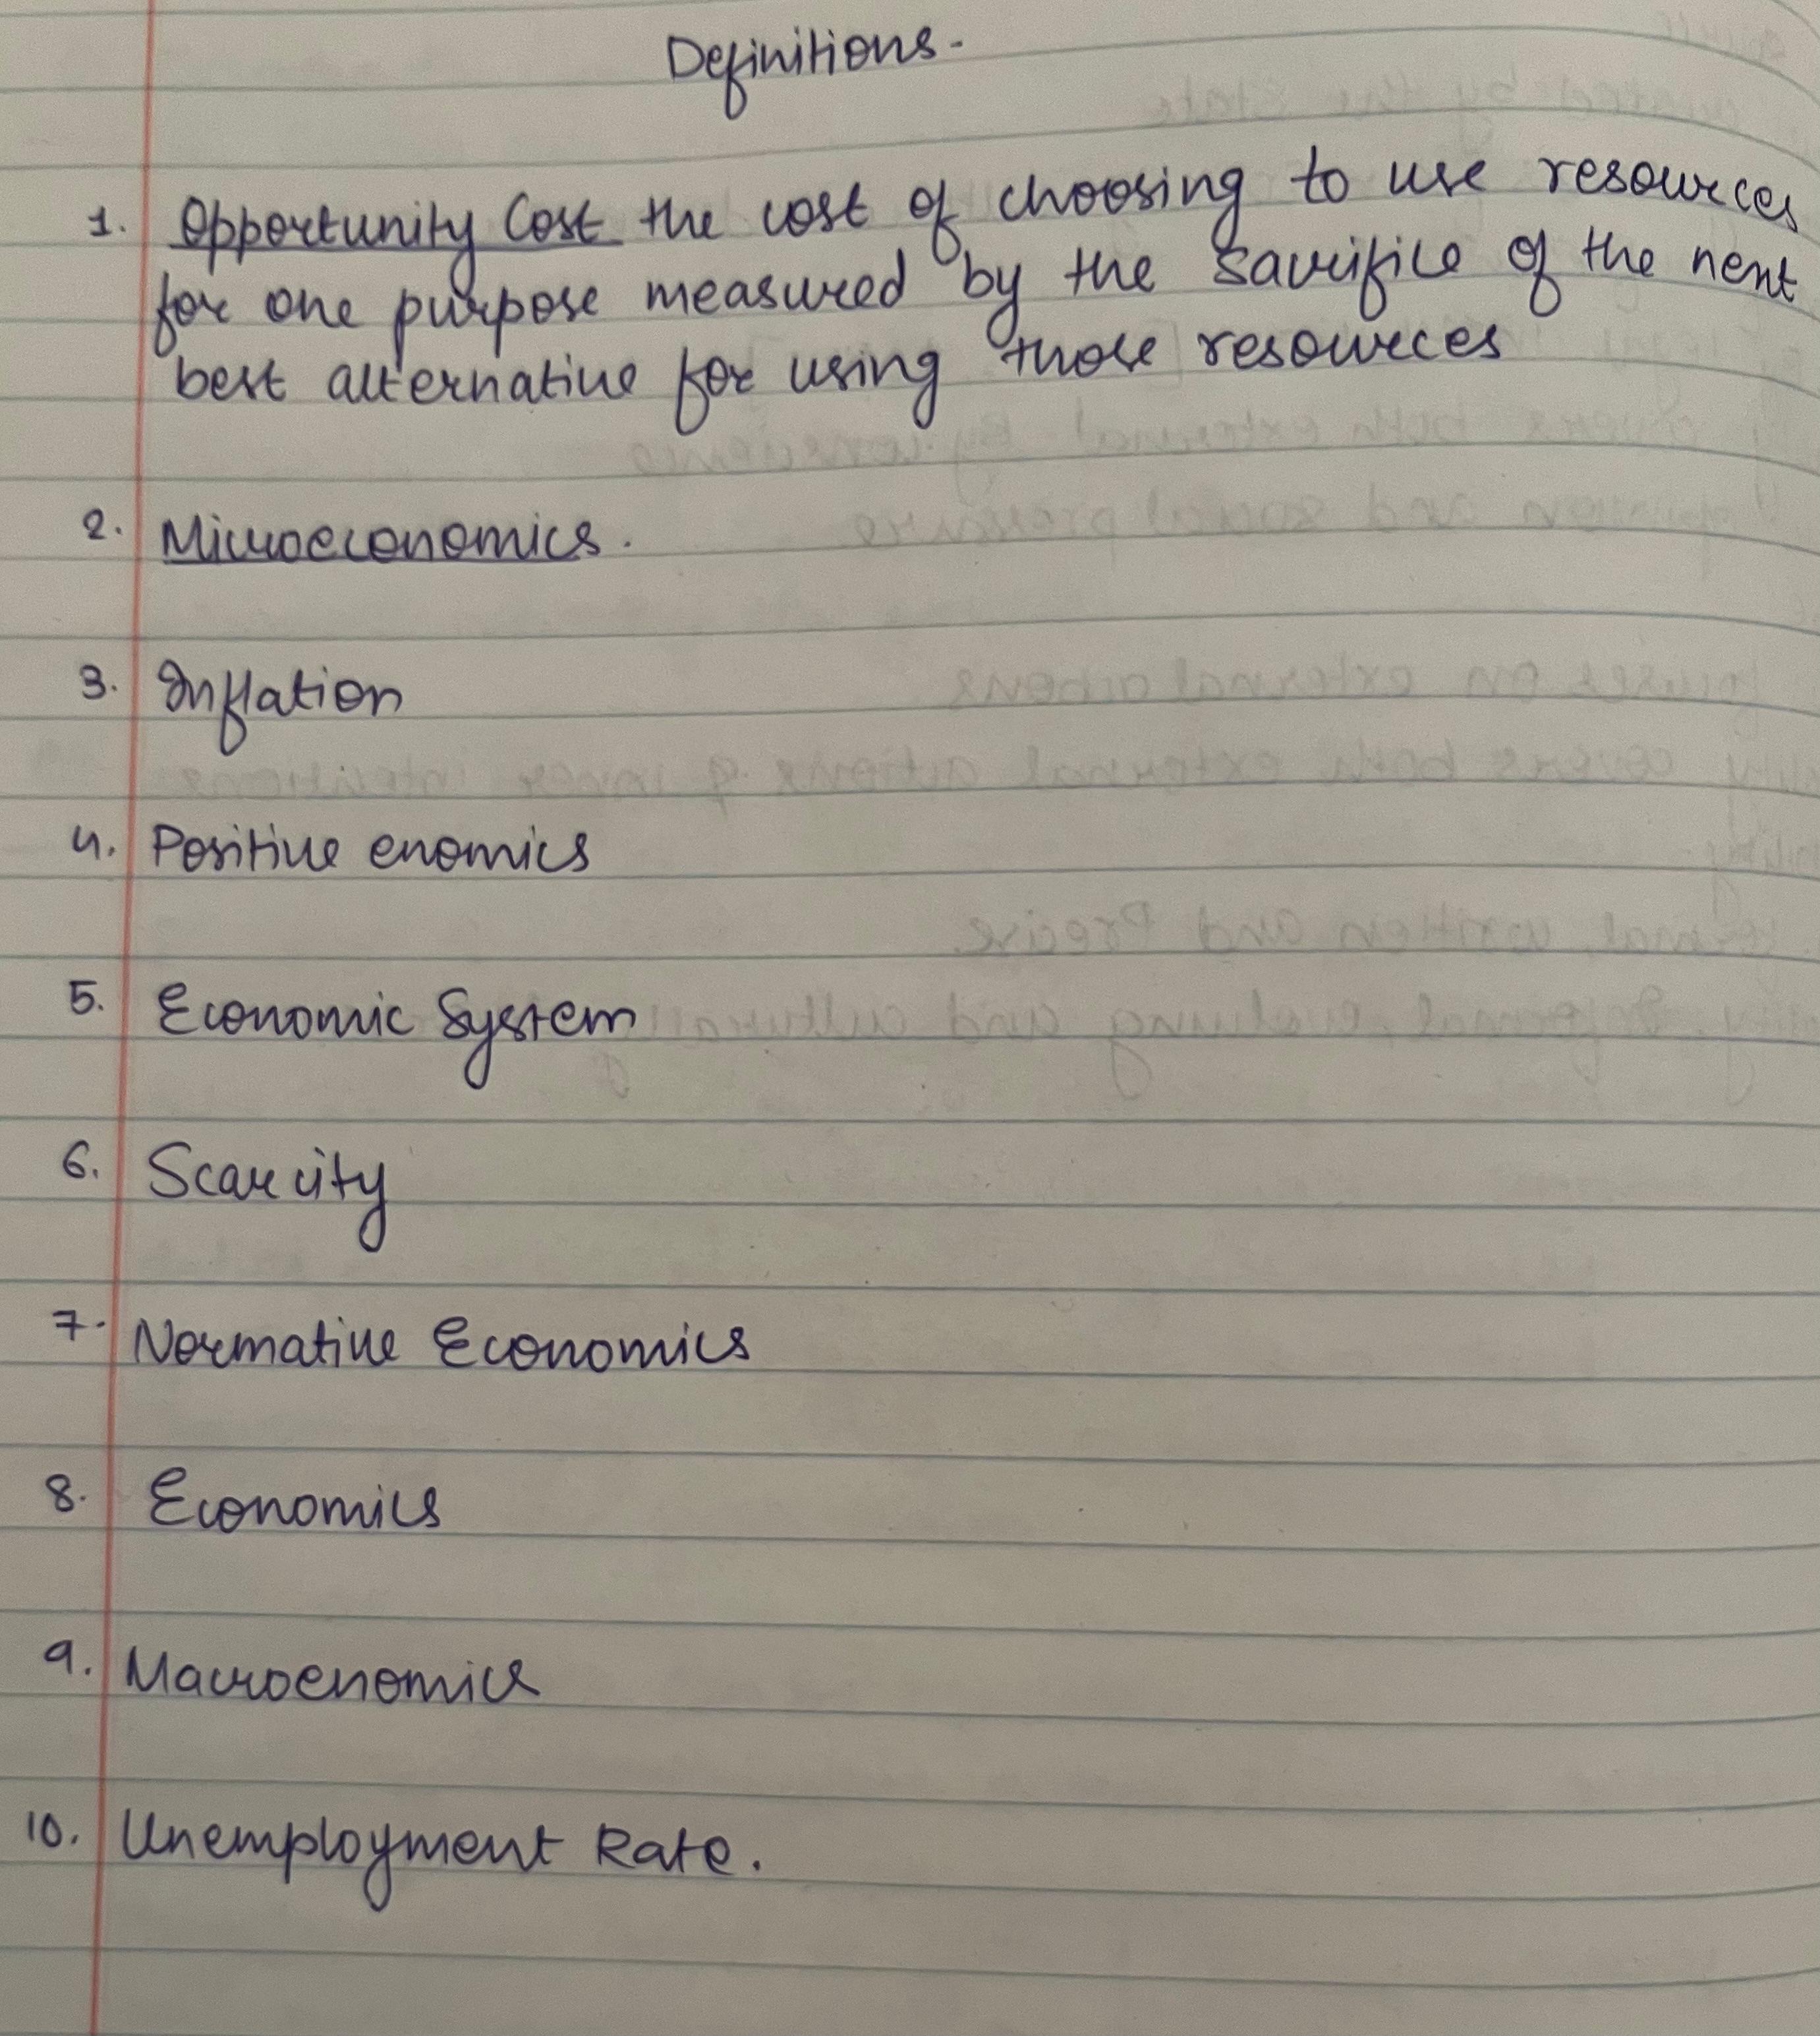 Definitions-
1. Opportunity Cost the cost of choosing to use resources
for one purpose measured by the sacrifice of the next
best alternative for using those resources
2. Microeconomics.
3. Inflation
4. Positive enomics
5. Economic System
6. Scarcity
7. Normative Economics
8. Economics
9. Macroenomics
10. Unemployment Rate.